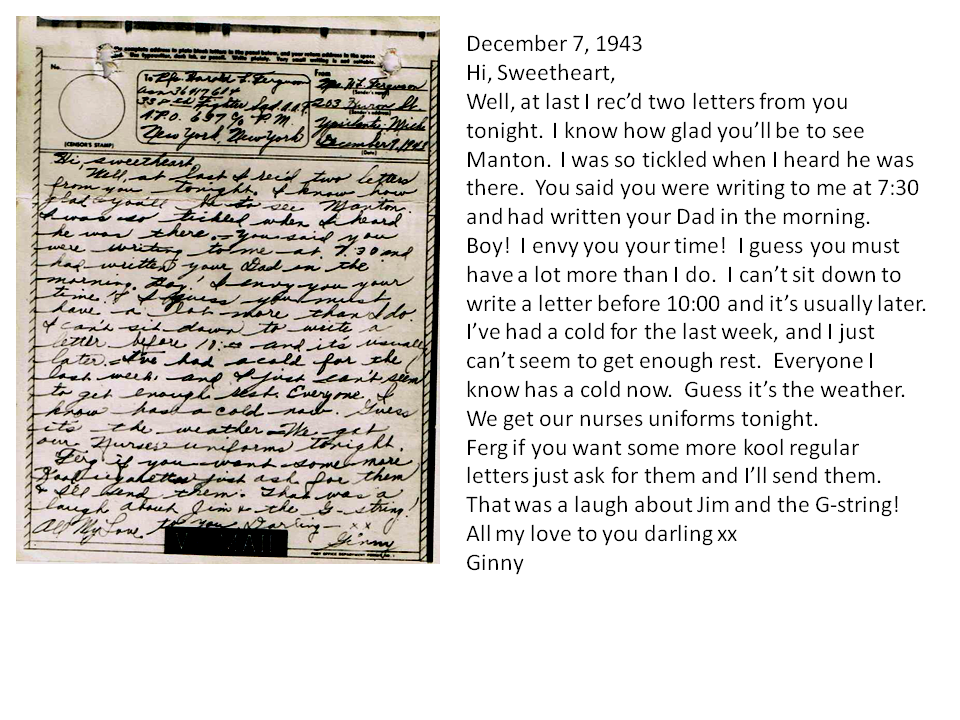 The complete address in plain block letters in the panel below, and your return address in the space
Use typewriter, dark ink, or pencil. Write plainly. Very small writing is not suitable.
No.
(CENSOR'S STAMP)
To Pfc. Harold L. Ferguson
33rd Fighter Sqd. A.A.F.
A.P.O. 697 c/o P.M.
New York, New York
From
Mrs. H. L. Ferguson
(Sender's name)
203 Huron St.
(Sender's address)
Ypsilanti, Mich
December 7, 1943
(Date)
Hi, sweetheart,
Well, at last I rec'd two letters
from you tonight. I know how
glad you'll be to see Manton.
I was so tickled when I heard
he was there. You said you
were writing to me at 7:30 and
had written your Dad in the
morning. Boy! I envy you your
time! I guess you must
have a lot more than I do.
I can't sit down to write a
letter before 10:00 and it's usually
later. I've had a cold for the
last week, and I just can't seem
to get enough rest. Everyone I
know has a cold now. Guess
it's the weather. We get
our nurses uniforms tonight.
Ferg if you want some more
Kool cigarettes just ask for them
& I'll send them. That was a
laugh about Jim & the G-string!
All My Love to you Darling – xx
Ginny
V-MAIL
POST OFFICE DEPARTMENT PERMIT NO. 1
December 7, 1943
Hi, Sweetheart,
Well, at last I rec’d two letters from you
tonight. I know how glad you’ll be to see
Manton. I was so tickled when I heard he was
there. You said you were writing to me at 7:30
and had written your Dad in the morning.
Boy! I envy you your time! I guess you must
have a lot more than I do. I can’t sit down to
write a letter before 10:00 and it’s usually later.
I’ve had a cold for the last week, and I just
can’t seem to get enough rest. Everyone I
know has a cold now. Guess it’s the weather.
We get our nurses uniforms tonight.
Ferg if you want some more kool regular
letters just ask for them and I’ll send them.
That was a laugh about Jim and the G-string!
All my love to you darling xx
Ginny